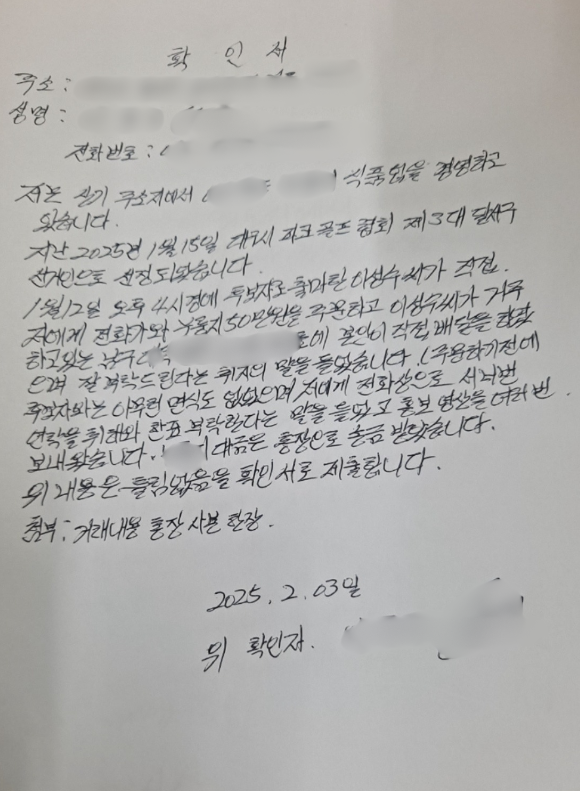 확 인 서
주소 :
성명 :
전화번호 :
저는 상기 주소지에서 식품업을 경영하고
있습니다.
지난 2025년 1월 15일 대구시 파크골프 협회 제3대 달서구
선거인으로 선정되었습니다.
1월 12일 오후 4시경에 후보자로 출마한 이성수씨가 직접
저에게 전화가와 50만원을 주문하고 이성수씨가 거주
하고있는 남구 에 본인이 직접 배달을 갔
으며 잘 부탁드린다는 취지의 말을 들었습니다. (주문하기전에
후보자와는 아무런 면식도 없었으며 저에게 전화상으로 서너번
연락을 취해와 한표 부탁한다는 말을 들었고 홍보 영상을 여러 번
보내왔습니다. 대금은 통장으로 송금 받았습니다.
위 내용은 틀림없음을 확인서로 제출합니다.
첨부 : 거래내용 통장 사본 한장.
2025. 2. 03일
위 확인자.